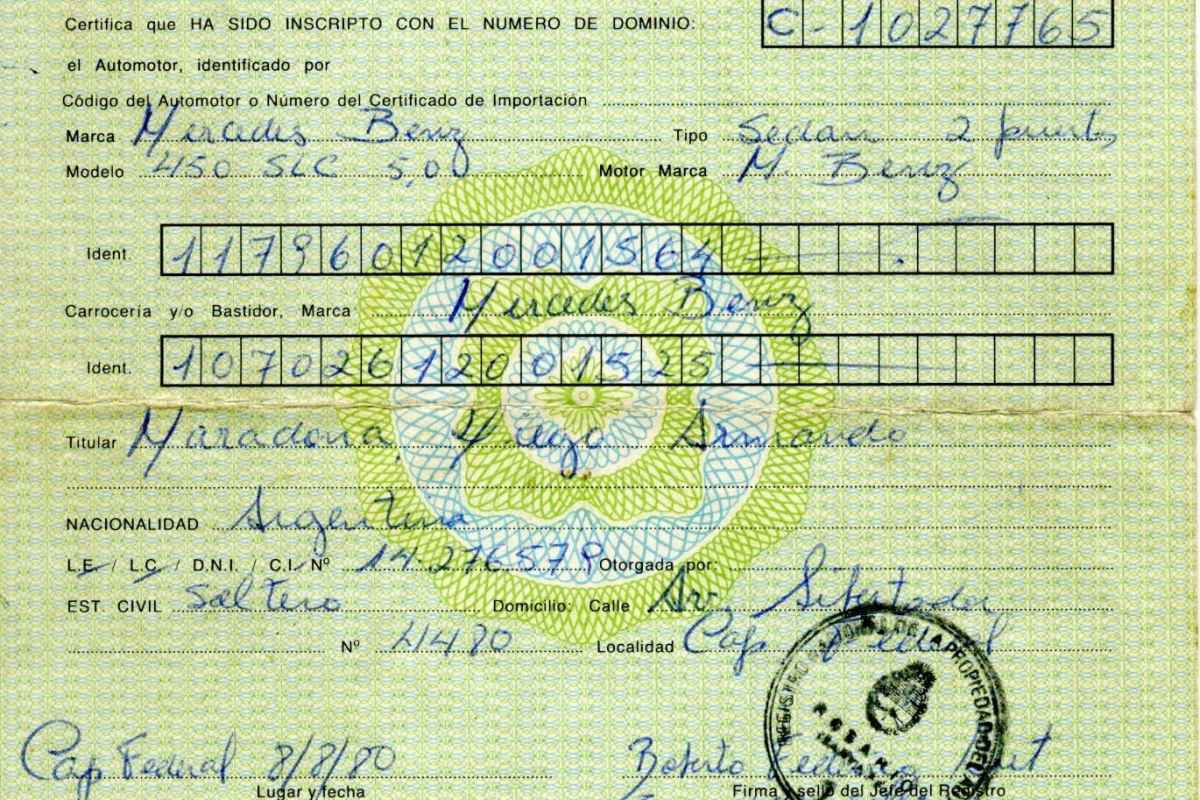 Certifica que HA SIDO INSCRIPTO CON EL NUMERO DE DOMINIO: C-1027765
el Automotor, identificado por
Código del Automotor o Número del Certificado de Importación
Marca Mercedes Benz Tipo Sedan 2 puert,
Modelo 450 SLC 5,00 Motor Marca M. Benz
Ident. 11796012001564
Carrocería y/o Bastidor, Marca Mercedes Benz
Ident. 10702612001525
Titular Maradona, Diego Armando
NACIONALIDAD Argentina
L.E / L.C / D.N.I. / C.I. Nº 14.276579 Otorgada por:
EST. CIVIL Soltero Domicilio: Calle Av. Libertador
Nº 4480 Localidad Cap Federal
REGISTRO NACIONAL DE LA PROPIEDAD DEL
ROSARIO
Cap Federal 8/8/80 Roberto
Lugar y fecha Firma y sello del Jefe del Registro